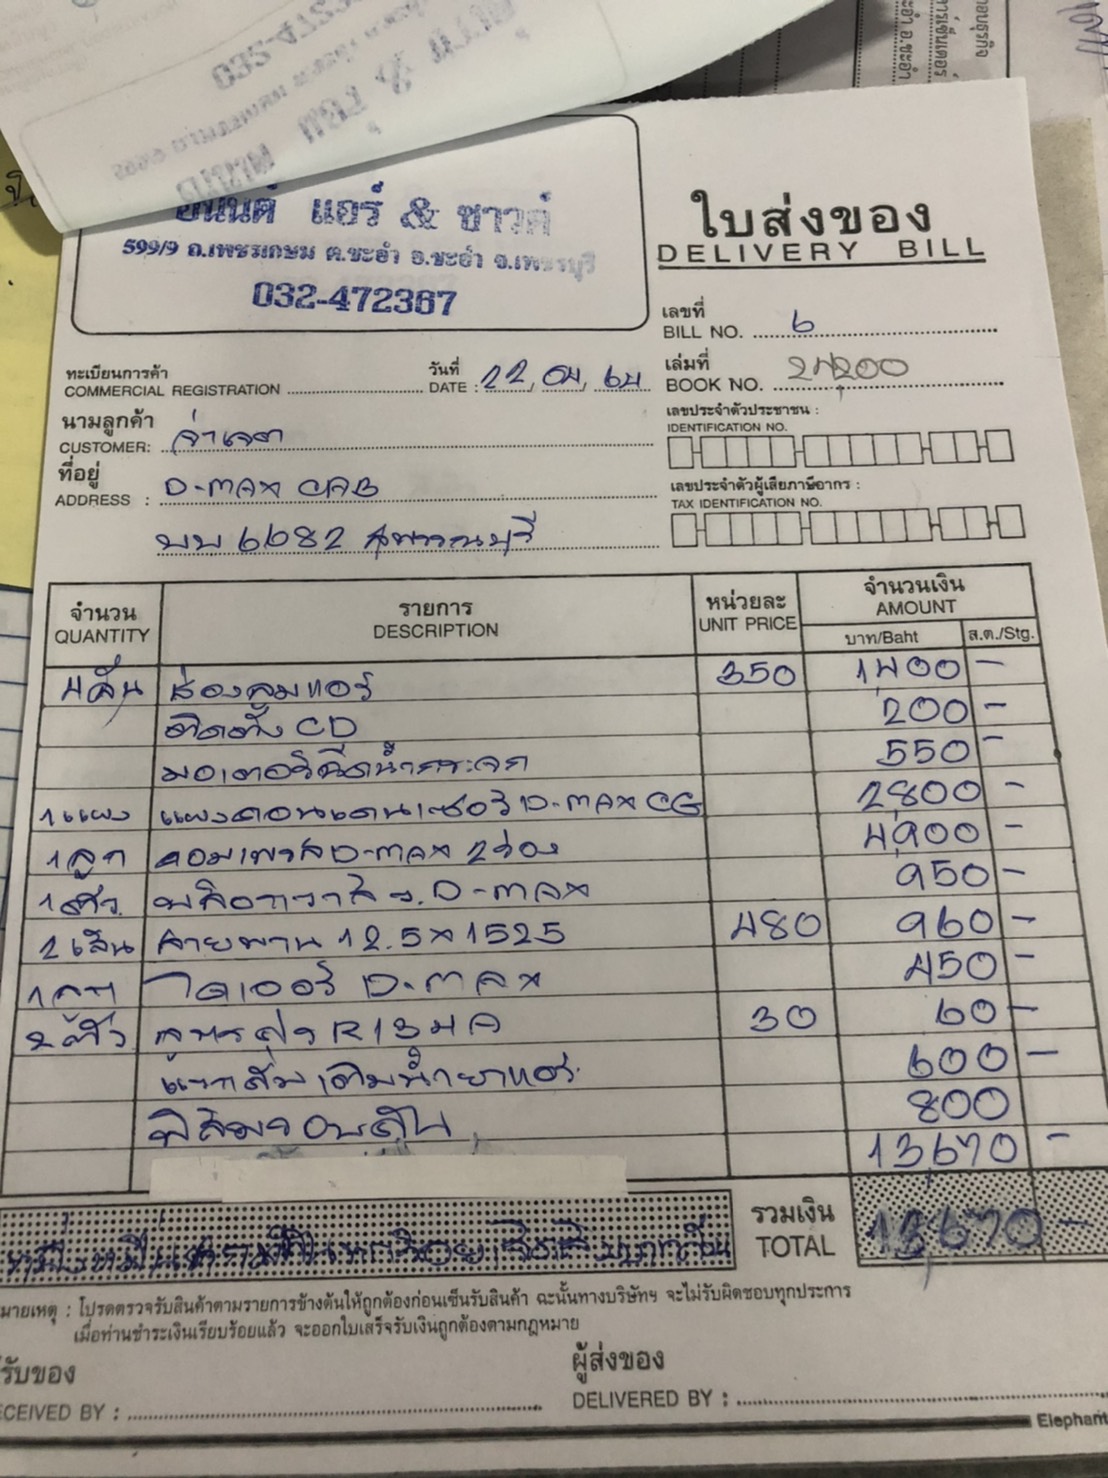 032-472367
อนันต์ แอร์ & ซาวด์
599/9 ถ.เพชรเกษม ต.ชะอำ อ.ชะอำ จ.เพชรบุรี
032-472367
ใบส่งของ
DELIVERY BILL
เลขที่
BILL NO. 6
ทะเบียนการค้า
COMMERCIAL REGISTRATION
วันที่
DATE : 22, 04, 64
เล่มที่
BOOK NO. 24200
นามลูกค้า
CUSTOMER: จ่าเจต
เลขประจำตัวประชาชน :
IDENTIFICATION NO.
ที่อยู่
ADDRESS : D-MAX CAB
บบ 6682 สุพรรณบุรี
เลขประจำตัวผู้เสียภาษีอากร :
TAX IDENTIFICATION NO.
จำนวน รายการ หน่วยละ จำนวนเงิน
QUANTITY DESCRIPTION UNIT PRICE AMOUNT
บาท/Baht ส.ต./Stg.
4 อัน ช่องลมแอร์ 350 1,400 -
ติดตั้ง CD 200 -
มอเตอร์ฉีดน้ำกระจก 550 -
1 แผง แผงคอนเดนเซอร์ D-MAX CG 2800 -
1 ลูก คอมเพรส D-MAX 2 ร่อง 4,900 -
1 ตัว D-MAX 950 -
2 เส้น สายพาน 12.5 x 1525 480 960 -
ไดเออร์ D-MAX 450 -
2 ตัว ลูกศร R134A 30 60 -
เติมน้ำยาแอร์ 600 -
ฟิล์มรอบคัน 800
13,670 -
หนึ่งหมื่นสามพันหกร้อยเจ็ดสิบบาทถ้วน
รวมเงิน
TOTAL 13,670 -
มายเหตุ : โปรดตรวจรับสินค้าตามรายการข้างต้นให้ถูกต้องก่อนเซ็นรับสินค้า ฉะนั้นทางบริษัทฯ จะไม่รับผิดชอบทุกประการ
เมื่อท่านชำระเงินเรียบร้อยแล้ว จะออกใบเสร็จรับเงินถูกต้องตามกฎหมาย
รับของ
CEIVED BY :
ผู้ส่งของ
DELIVERED BY :
Elephant